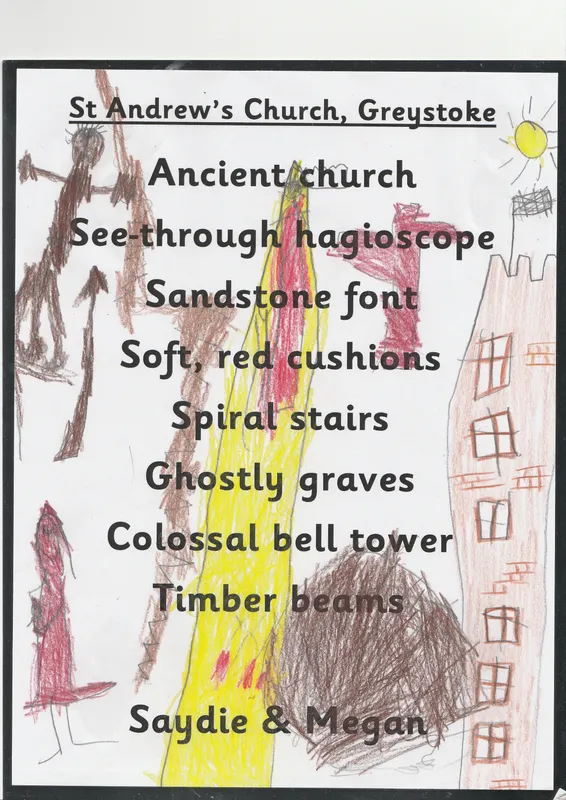 St Andrew's Church, Greystoke
Ancient church
See-through hagioscope
Sandstone font
Soft, red cushions
Spiral stairs
Ghostly graves
Colossal bell tower
Timber beams
Saydie & Megan